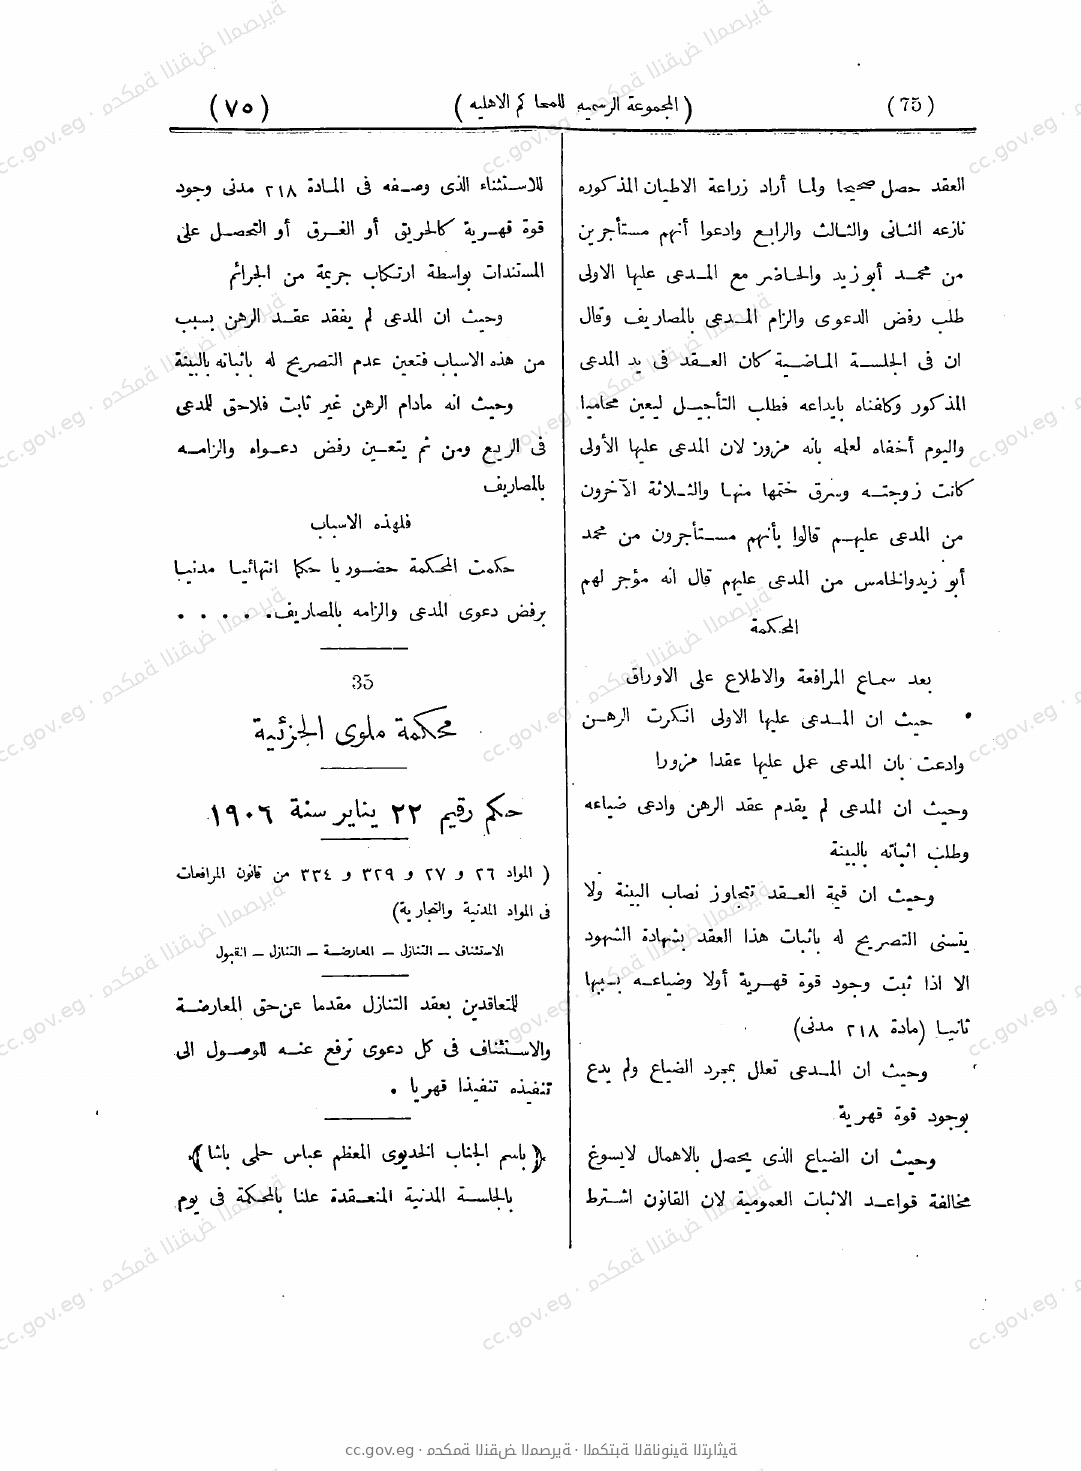 (75)
(المجموعة الرسميه للمحاكم الاهليه)
(٧٥)
العقد حصل صحيحا ولما أراد زراعة الاطيان المذكوره
نازعه الثانى والثالث والرابع وادعوا أنهم مستأجرين
من محمد أبوزيد والحاضر مع المدعى عليها الاولى
طلب رفض الدعوى والزام المدعى بالمصاريف وقال
ان فى الجلسة الماضية كان العقد فى يد المدعى
المذكور وكافناه بايداعه فطلب التأجيل ليعين محاميا
واليوم أخفاه لعلمه بانه مزور لان المدعى عليها الأولى
كانت زوجته وسرق ختمها منها والثلاثة الآخرون
من المدعى عليهم قالوا بأنهم مستأجرون من محمد
أبو زيدوالخامس من المدعى عليهم قال انه مؤجر لهم
المحكمة
بعد سماع المرافعة والاطلاع على الاوراق
حيث ان المدعى عليها الاولى انكرت الرهن
وادعت بان المدعى عمل عليها عقدا مزورا
وحيث ان المدعى لم يقدم عقد الرهن وادعى ضياعه
وطلب اثباته بالبينة
وحيث ان قيمة العقد تتجاوز نصاب البينة ولا
يتسنى التصريح له باثبات هذا العقد بشهادة الشهود
الا اذا ثبت وجود قوة قهرية أولا وضياعه بسببها
ثانيا (مادة ٢١٨ مدنى)
وحيث ان المدعى تعلل بمجرد الضياع ولم يدع
بوجود قوة قهرية
وحيث ان الضياع الذى يحصل بالاهمال لايسوغ
مخالفة قواعد الاثبات العمومية لان القانون اشترط
للاستثناء الذى وصفه فى المادة ٢١٨ مدنى وجود
قوة قهرية كالحريق أو الغرق أو التحصل على
المستندات بواسطة ارتكاب جريمة من الجرائم
وحيث ان المدعى لم يفقد عقد الرهن بسبب
من هذه الاسباب فتعين عدم التصريح له باثباته بالبينة
وحيث انه مادام الرهن غير ثابت فلاحق للمدعى
فى الريع ومن ثم يتعين رفض دعواه والزامه
بالمصاريف
فلهذه الاسباب
حكمت المحكمة حضوريا حكما انتهائيا مدنيا
برفض دعوى المدعى والزامه بالمصاريف. . . . .
35
محكمة ملوى الجزئية
حكم رقيم ٢٢ يناير سنة ١٩٠٦
( المواد ٢٦ و ٢٧ و ٣٢٩ و ٣٣٤ من قانون المرافعات
فى المواد المدنية والتجارية)
الاستئناف ــ التنازل ــ المعارضة ــ التنازل ــ القبول
للمتعاقدين بعقد التنازل مقدما عن حق المعارضة
والاستئناف فى كل دعوى ترفع عنه للوصول الى
تنفيذه تنفيذا قهريا .
(باسم الجناب الخديوى المعظم عباس حلمى باشا)
بالجلسة المدنية المنعقدة علنا بالمحكمة فى يوم
cc.gov.eg · محكمة النقض المصرية · المكتبة القانونية التراثية